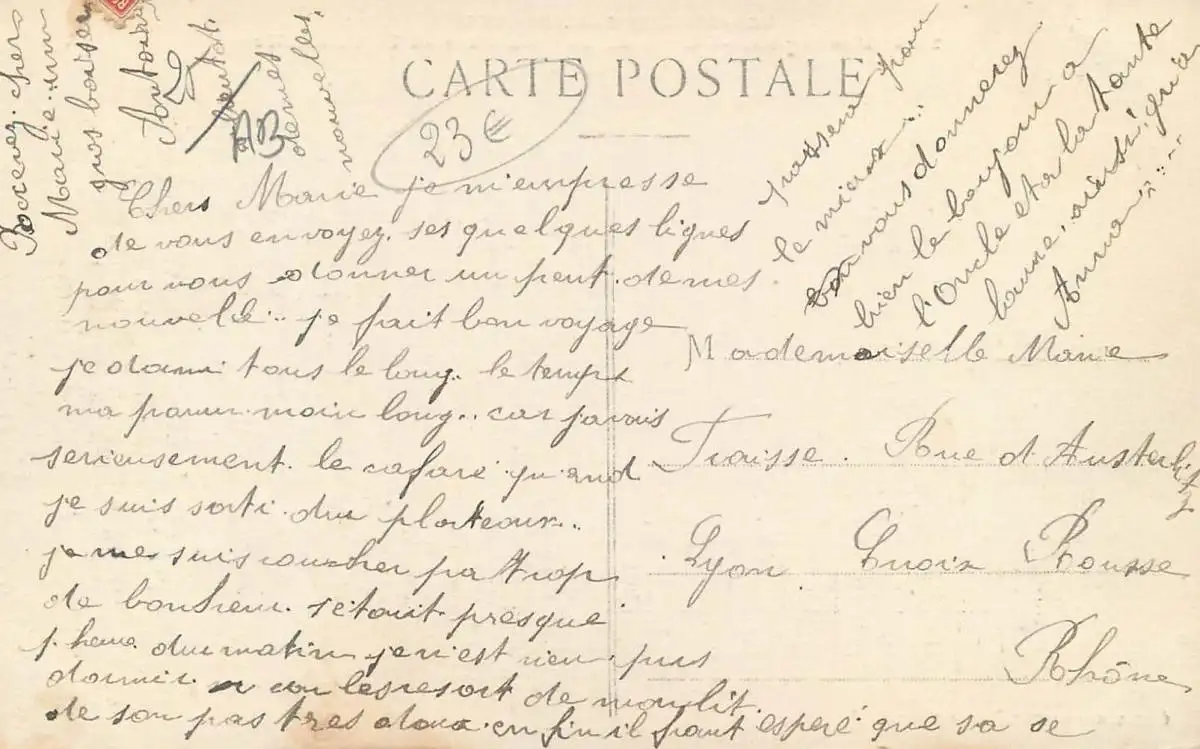 CARTE POSTALE
23 €
AB
Chers Marie je m'empresse
de vous envoyez, ses quelques lignes
pour vous donner un peut de mes
nouvelle.. je fait bon voyage
je dormi tous le long. le temps
ma parur moin long.. car j'avais
serieusement. le cafare quand
je suis sorti du plateaux..
je me suis coucher pa trop
de bonheur. s'etait presque
1. heure du matin je n'est rien pus
dormir. car les resort de mon lit
de son pas tres doux. enfin il faut esperé que sa se
passera pour
le mieux..
vous donnerez
bien le bonjour a
l'Oncle et a la tante
bonne, ainsi qu'a
Anna....
Recevez. chers
Marie. un
gros baiser
Antoine
a bientot.
de mes
nouvelles.
Mademoiselle Marie
Traisse. Rue d'Austerlitz
Lyon Croix Rousse
Rhône